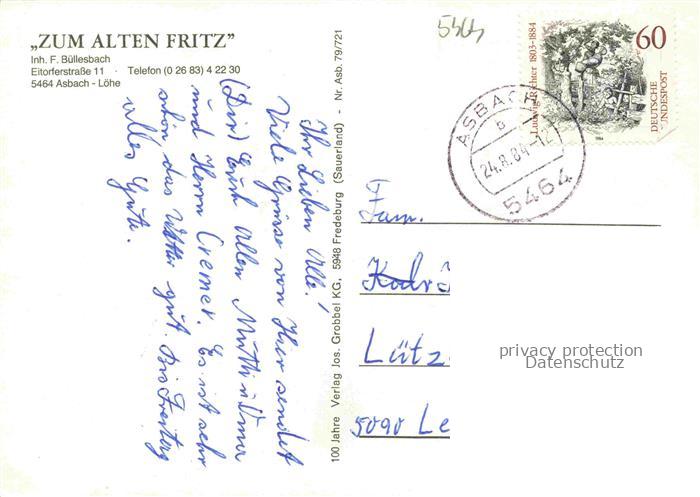 „ZUM ALTEN FRITZ”
Inh. F. Büllesbach
Eitorferstraße 11 · Telefon (0 26 83) 4 22 30
5464 Asbach - Löhe
Ihr Lieben Alle!
Viele Grüsse von Hier sendet
(Dir) Euch allen Mutti u Oma
und Herrn Cremer. Es ist sehr
schön, das Wetter gut. Bis Freitag
alles Gute.
100 Jahre Verlag Jos. Grobbel KG, 5949 Fredeburg (Sauerland) - Nr. Asb. 79/721
5464
Ludwig Richter 1803-1884
60
DEUTSCHE
BUNDESPOST
1984
ASBACH
b
24.8.84-12
5464
Fam.
Lütz
5090 Le
privacy protection
Datenschutz